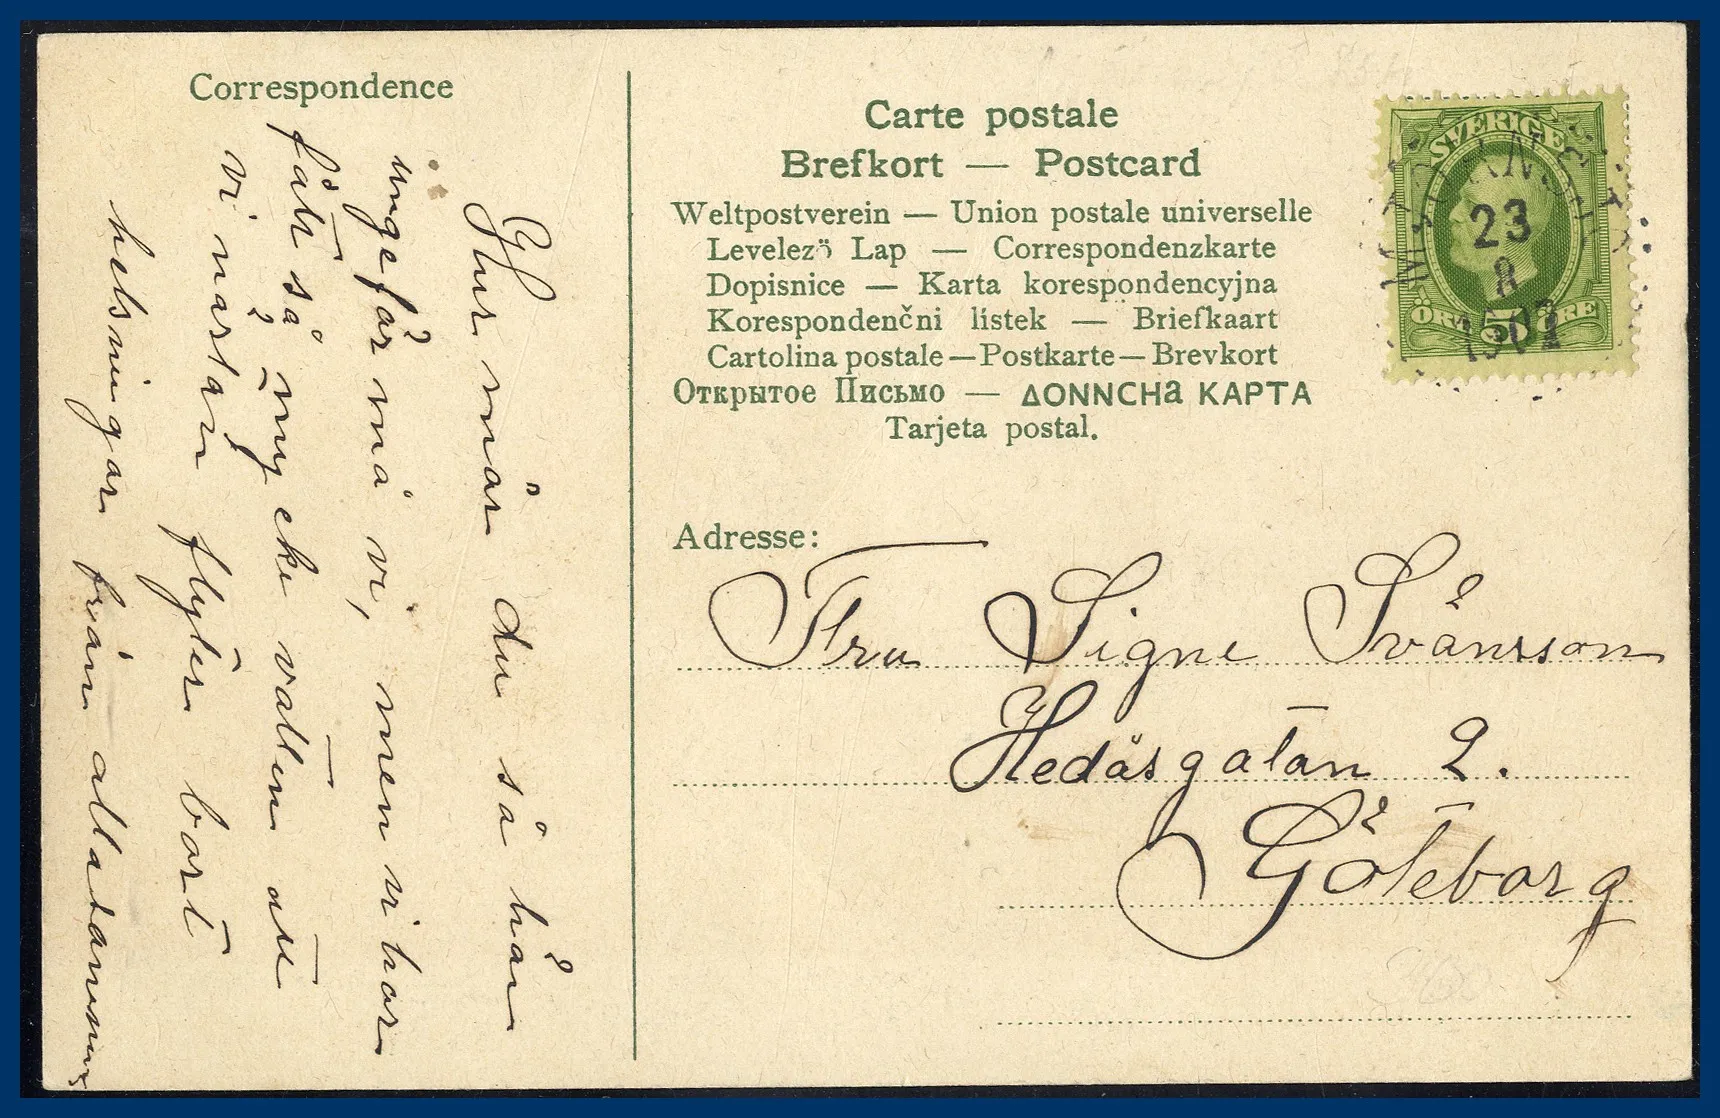 Correspondence
Hur mår du så här
ungefär må vi, men vi har
fått så mycke vatten att
vi nästan flyter bort
helsningar från alla
Carte postale
Brefkort — Postcard
Weltpostverein — Union postale universelle
Levelező Lap — Correspondenzkarte
Dopisnice — Karta korespondencyjna
Korespondenčni listek — Briefkaart
Cartolina postale — Postkarte — Brevkort
Открытое Письмо — ΔΟΝΝCHа ΚΑΡΤΑ
Tarjeta postal.
SVERIGE
ÖRE 5 ÖRE
23
8
Adresse:
Fru Signe Svänsson
Hedåsgatan 2.
Göteborg